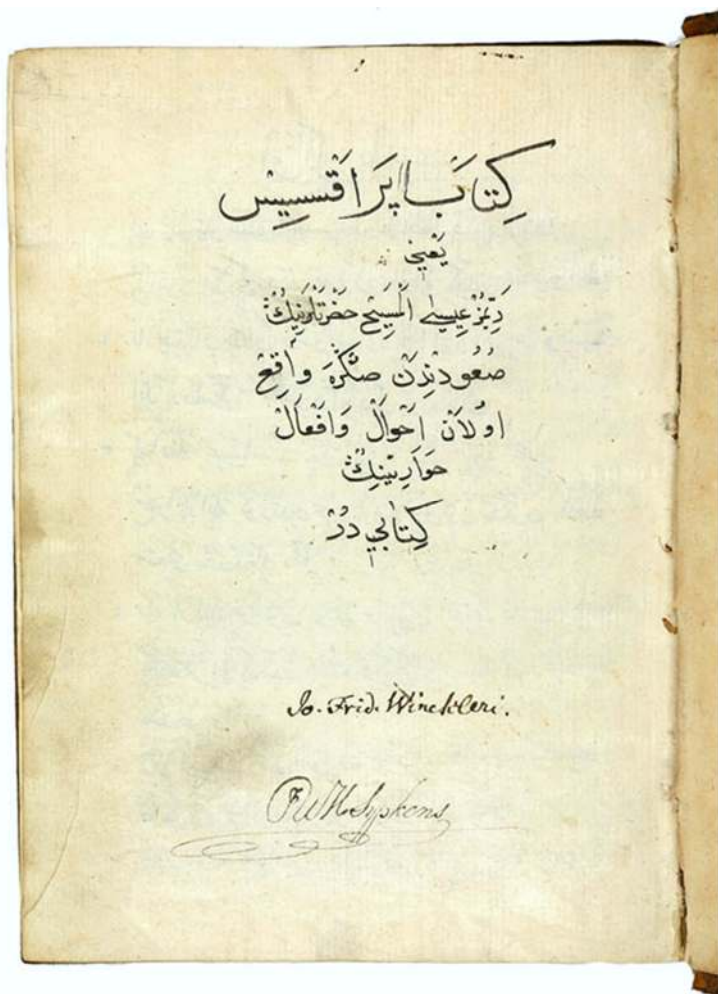 كِتَاب اپرَاقسِيس
يَعْنِي
رَبِّمُز عِيسٰى اَلْمَسِيح حَضْرَتْلَرِنِيڭ
صُعُودِنْدِن صَڭْرَه وَاقِع
اوُلَانْ اَحْوَالْ وَاَفْعَالْ
حَوَارِيِّنِيڭْ
كِتَابِي دُرْ
Jo. Frid. Winckleri.
FWH Sypkens